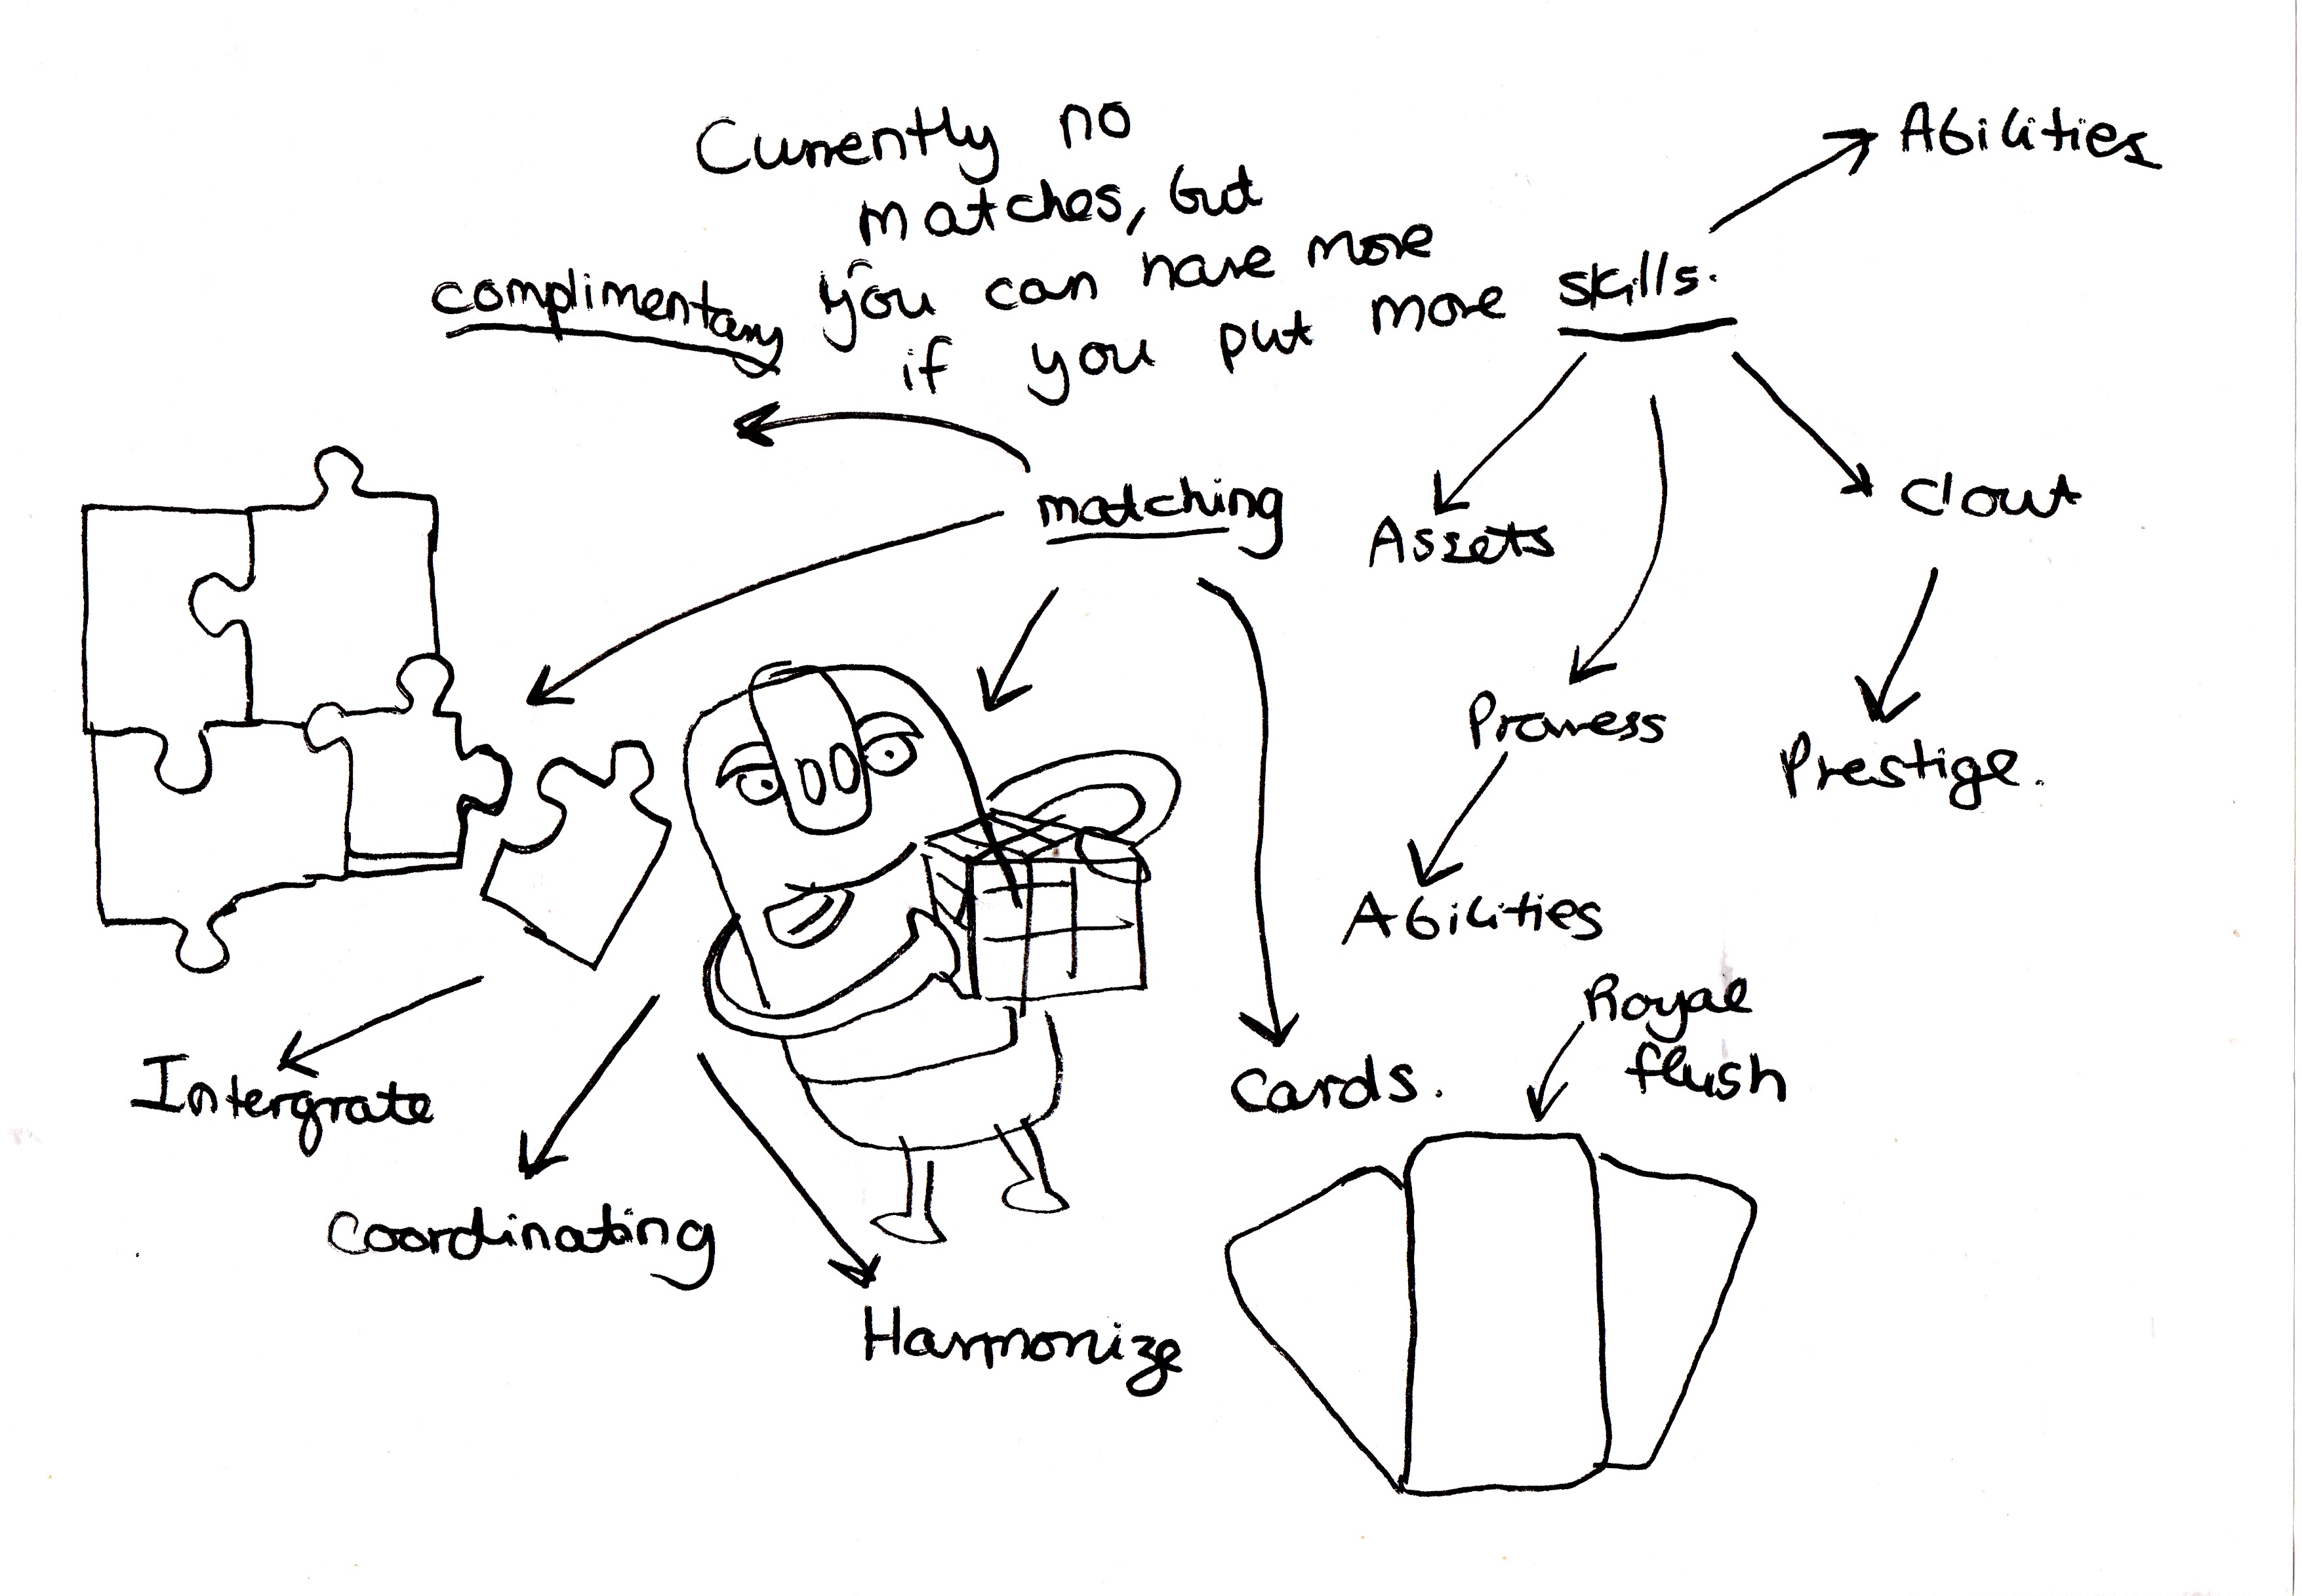 Currently no
matches, but
you can have more
if you put more skills.
Abilities
complimentary
matching
Assets
clout
Prowess
Prestige.
Abilities
Royal
flush
Intergrate
cards.
Coordinating
Harmonize